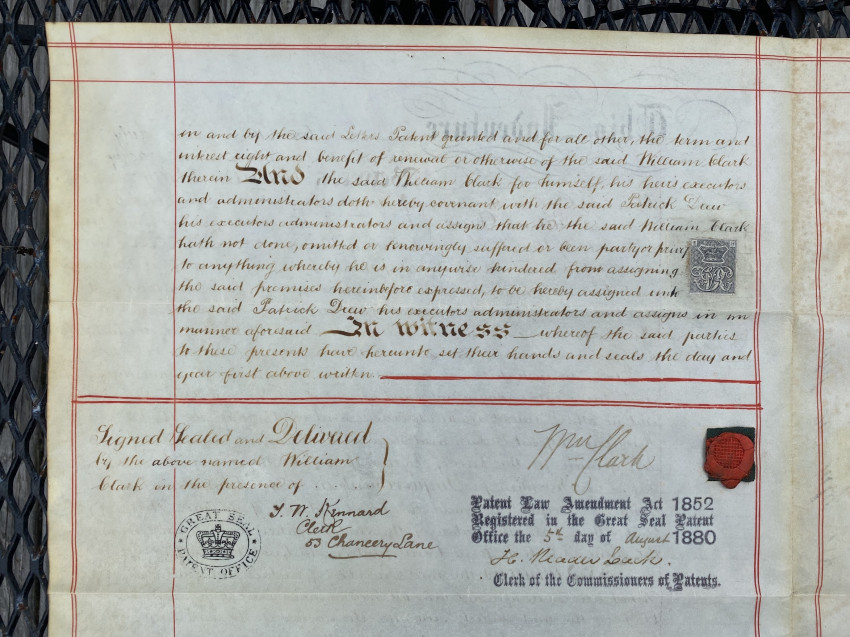 in and by the said Letters Patent granted and for all other, the term and
interest right and benefit of renewal or otherwise of the said William Clark
therein And the said William Clark for himself, his heirs executors
and administrators doth hereby covenant with the said Patrick Drew
his executors administrators and assigns that he the said William Clark
hath not done, omitted or knowingly suffered or been party or privy
to anything whereby he is in anywise hindered from assigning
the said premises hereinbefore expressed, to be hereby assigned unto
the said Patrick Drew his executors administrators and assigns in
manner aforesaid In witness whereof the said parties
to these presents have hereunto set their hands and seals the day and
year first above written.
Signed Sealed and Delivered
by the above named William
Clark in the presence of . . . . .
Wm Clark
W. Kennard
Clerk
53 Chancery Lane
GREAT SEAL
PATENT OFFICE
Patent Law Amendment Act 1852
Registered in the Great Seal Patent
Office the 5th day of August 1880
H. Reader Lack.
Clerk of the Commissioners of Patents.